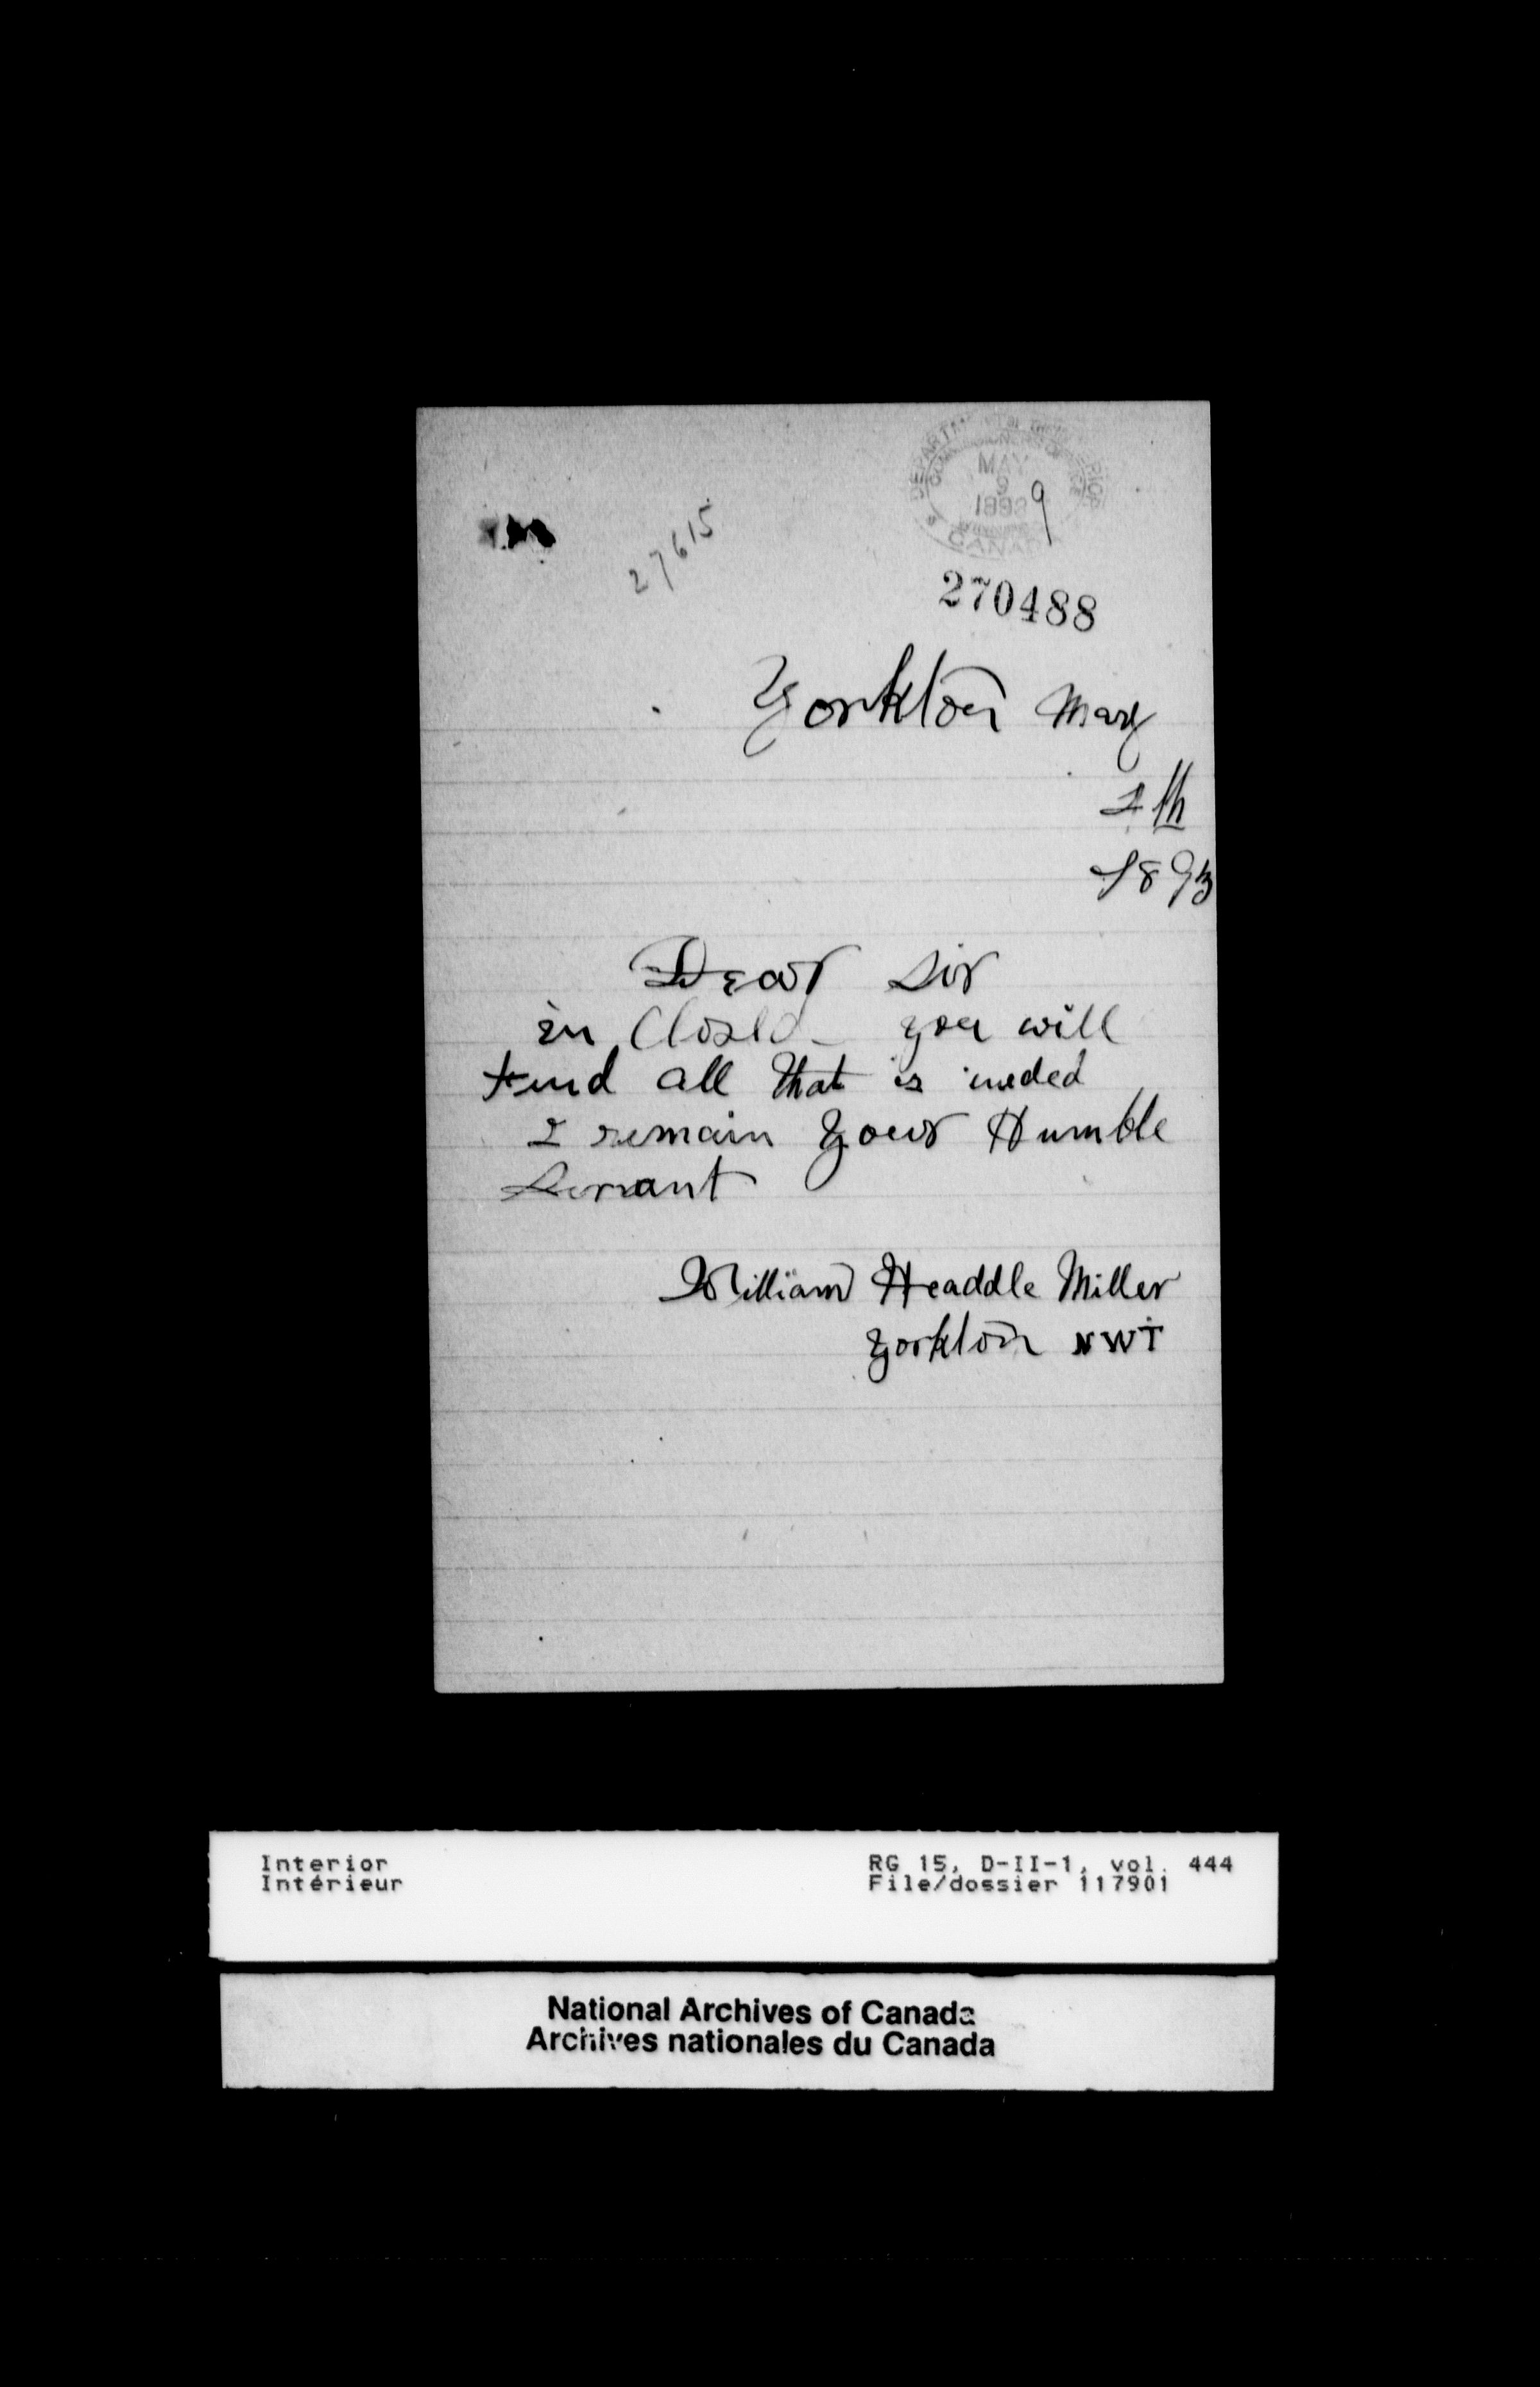 DEPARTMENT OF THE INTERIOR
COMMISSIONER'S OFFICE
MAY
9
1893
WINNIPEG
CANADA
9
27615
270488
Yorkton May
1th
1893
Dear Sir
in Closed you will
find all that is needed
I remain your Humble
Servant
William Headdle Miller
Yorkton NWT
Interior
Intérieur
RG 15, D-II-1, vol. 444
File/dossier 117901
National Archives of Canada
Archives nationales du Canada